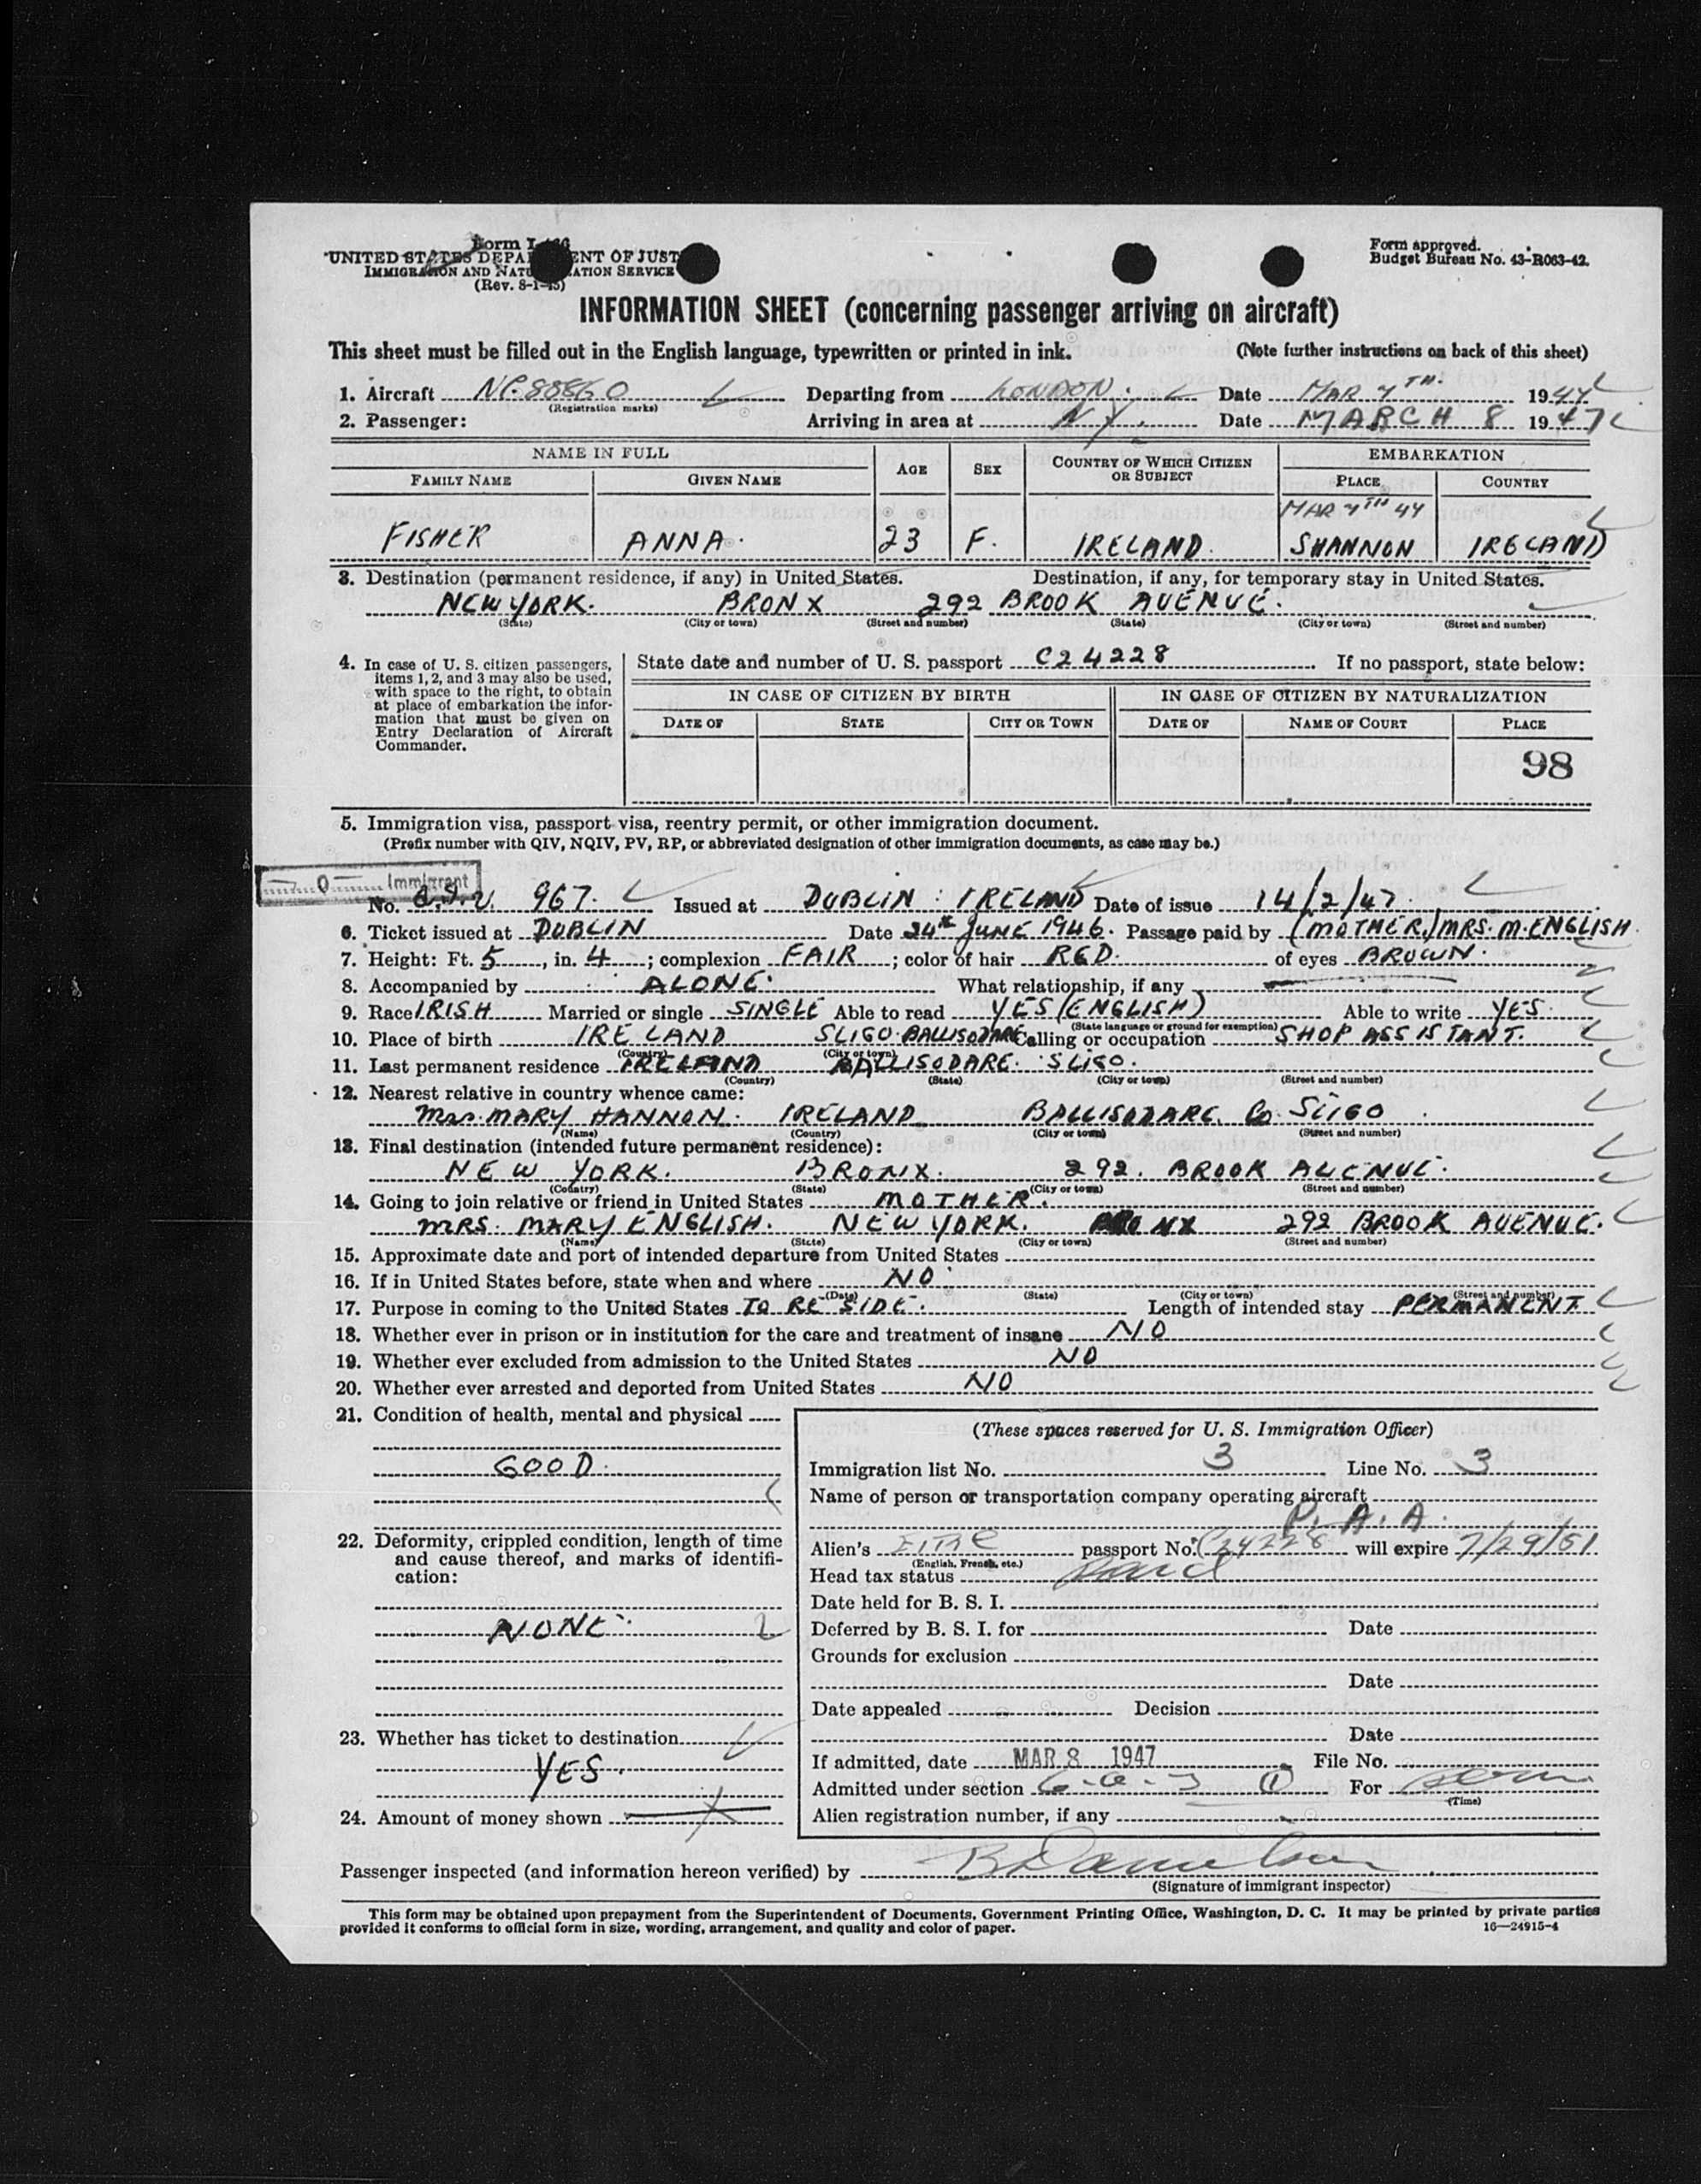 Form I-466
UNITED STATES DEPARTMENT OF JUSTICE
IMMIGRATION AND NATURALIZATION SERVICE
(Rev. 8-1-45)
Form approved.
Budget Bureau No. 43-R063-42.
INFORMATION SHEET (concerning passenger arriving on aircraft)
This sheet must be filled out in the English language, typewritten or printed in ink. (Note further instructions on back of this sheet)
1. Aircraft NC.88860 Departing from LONDON. Date MAR 7TH. 1947
(Registration marks)
2. Passenger: Arriving in area at N.Y. Date MARCH 8 1947
NAME IN FULL AGE SEX COUNTRY OF WHICH CITIZEN OR SUBJECT EMBARKATION
FAMILY NAME GIVEN NAME PLACE COUNTRY
MAR 7TH 47
FISHER ANNA. 23 F. IRELAND. SHANNON IRELAND
3. Destination (permanent residence, if any) in United States. Destination, if any, for temporary stay in United States.
NEW YORK. BRONX 292 BROOK AVENUE.
(State) (City or town) (Street and number) (State) (City or town) (Street and number)
4. In case of U. S. citizen passengers, items 1, 2, and 3 may also be used, with space to the right, to obtain at place of embarkation the information that must be given on Entry Declaration of Aircraft Commander.
State date and number of U. S. passport C24228 If no passport, state below:
IN CASE OF CITIZEN BY BIRTH IN CASE OF CITIZEN BY NATURALIZATION
DATE OF STATE CITY OR TOWN DATE OF NAME OF COURT PLACE
98
5. Immigration visa, passport visa, reentry permit, or other immigration document.
(Prefix number with QIV, NQIV, PV, RP, or abbreviated designation of other immigration documents, as case may be.)
0 Immigrant
No. Q.I.V. 967. Issued at DUBLIN : IRELAND Date of issue 14/2/47.
6. Ticket issued at DUBLIN Date 24th JUNE 1946. Passage paid by (MOTHER) MRS. M. ENGLISH.
7. Height: Ft. 5, in. 4; complexion FAIR; color of hair RED. of eyes BROWN.
8. Accompanied by ALONE. What relationship, if any
9. Race IRISH Married or single SINGLE Able to read YES (ENGLISH) Able to write YES.
(State language or ground for exemption)
10. Place of birth IRELAND SLIGO BALLISODARE Calling or occupation SHOP ASSISTANT.
(Country) (City or town)
11. Last permanent residence IRELAND BALLISODARE. SLIGO.
(Country) (State) (City or town) (Street and number)
12. Nearest relative in country whence came:
Mrs. MARY HANNON. IRELAND BALLISODARE. Co. SLIGO
(Name) (Country) (City or town) (Street and number)
13. Final destination (intended future permanent residence):
NEW YORK. BRONX. 292. BROOK AVENUE.
(Country) (State) (City or town) (Street and number)
14. Going to join relative or friend in United States MOTHER.
MRS. MARY ENGLISH. NEW YORK. BRONX 292 BROOK AVENUE.
(Name) (State) (City or town) (Street and number)
15. Approximate date and port of intended departure from United States
16. If in United States before, state when and where NO
(Date) (State) (City or town) (Street and number)
17. Purpose in coming to the United States TO RESIDE. Length of intended stay PERMANENT.
18. Whether ever in prison or in institution for the care and treatment of insane NO
19. Whether ever excluded from admission to the United States NO
20. Whether ever arrested and deported from United States NO
21. Condition of health, mental and physical
GOOD.
22. Deformity, crippled condition, length of time and cause thereof, and marks of identification:
NONE.
23. Whether has ticket to destination
YES.
24. Amount of money shown
(These spaces reserved for U. S. Immigration Officer)
Immigration list No. 3 Line No. 3
Name of person or transportation company operating aircraft
P. A. A.
Alien's EIRE passport No. C24228 will expire 7/29/51
(English, French, etc.)
Head tax status Paid
Date held for B. S. I.
Deferred by B. S. I. for Date
Grounds for exclusion
Date
Date appealed Decision
Date
If admitted, date MAR 8 1947 File No.
Admitted under section 6-a-3 (1) For perm
(Time)
Alien registration number, if any
Passenger inspected (and information hereon verified) by
(Signature of immigrant inspector)
This form may be obtained upon prepayment from the Superintendent of Documents, Government Printing Office, Washington, D. C. It may be printed by private parties
provided it conforms to official form in size, wording, arrangement, and quality and color of paper. 16—24915-4